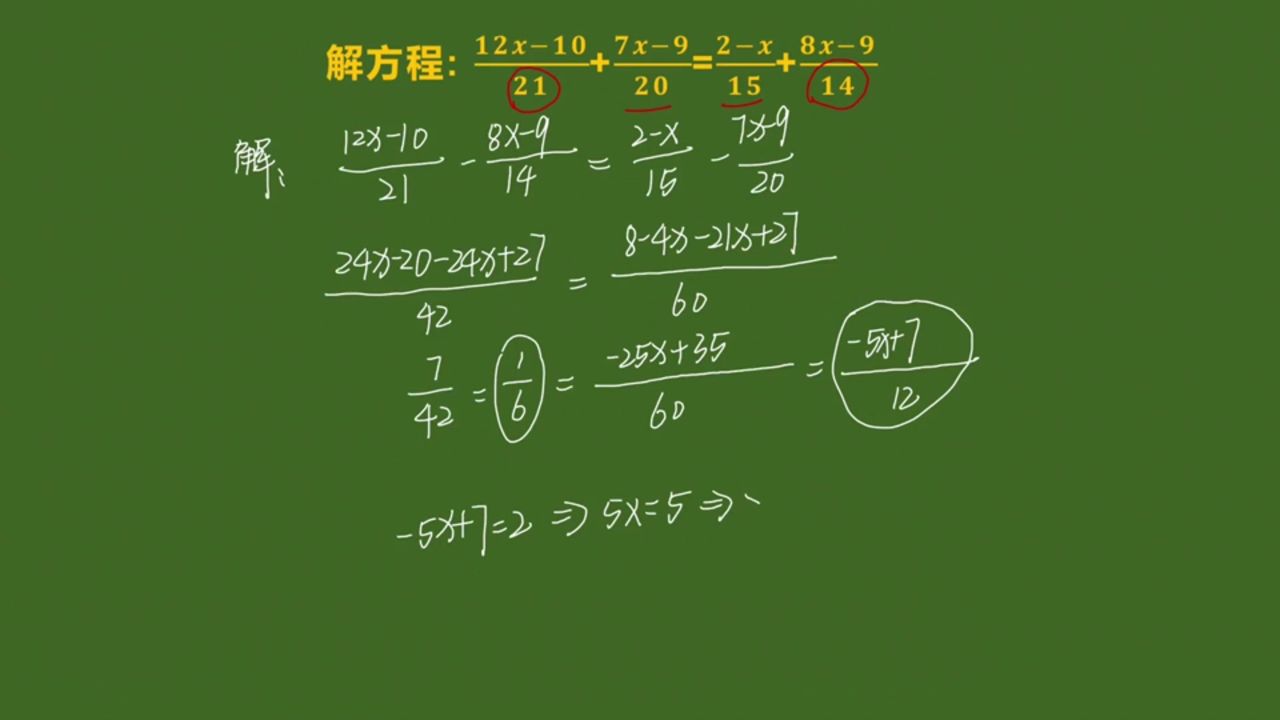 解方程: (12x-10)/21+(7x-9)/20=(2-x)/15+(8x-9)/14
解: (12x-10)/21 - (8x-9)/14 = (2-x)/15 - (7x-9)/20
(24x-20-24x+27)/42 = (8-4x-21x+27)/60
7/42 = 1/6 = (-25x+35)/60 = (-5x+7)/12
-5x+7=2 ⇒ 5x=5 ⇒